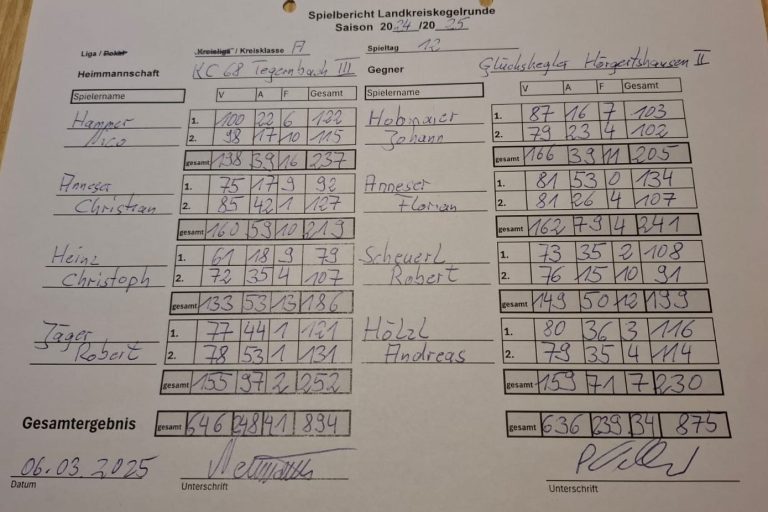 Spielbericht Landkreiskegelrunde
Saison 2024/2025
Liga / Pokal Kreisliga / Kreisklasse A Spieltag 12
Heimmannschaft KC 68 Tegernbach III Gegner Glückskegler Hörgertshausen II
Spielername V A F Gesamt Spielername V A F Gesamt
Hammer 1. 100 22 6 122 Hobmaier 87 16 7 103
Nico 2. 98 17 10 115 Johann 79 23 4 102
gesamt 198 39 16 237 gesamt 166 39 11 205
Anneser 1. 75 17 9 92 Anneser 1. 81 53 0 134
Christian 2. 85 42 1 127 Florian 2. 81 26 4 107
gesamt 160 59 10 219 gesamt 162 79 4 241
Heinz 1. 61 18 9 79 Scheuerl 1. 73 35 2 108
Christoph 2. 72 35 4 107 Robert 2. 76 15 10 91
gesamt 133 53 13 186 gesamt 149 50 12 199
Jäger 1. 77 44 1 121 Hölzl 1. 80 36 3 116
Robert 2. 78 53 1 131 Andreas 2. 79 35 4 114
gesamt 155 97 2 252 gesamt 159 71 7 230
Gesamtergebnis gesamt 646 248 41 894 gesamt 636 239 34 875
06.03.2025
Datum Unterschrift Unterschrift